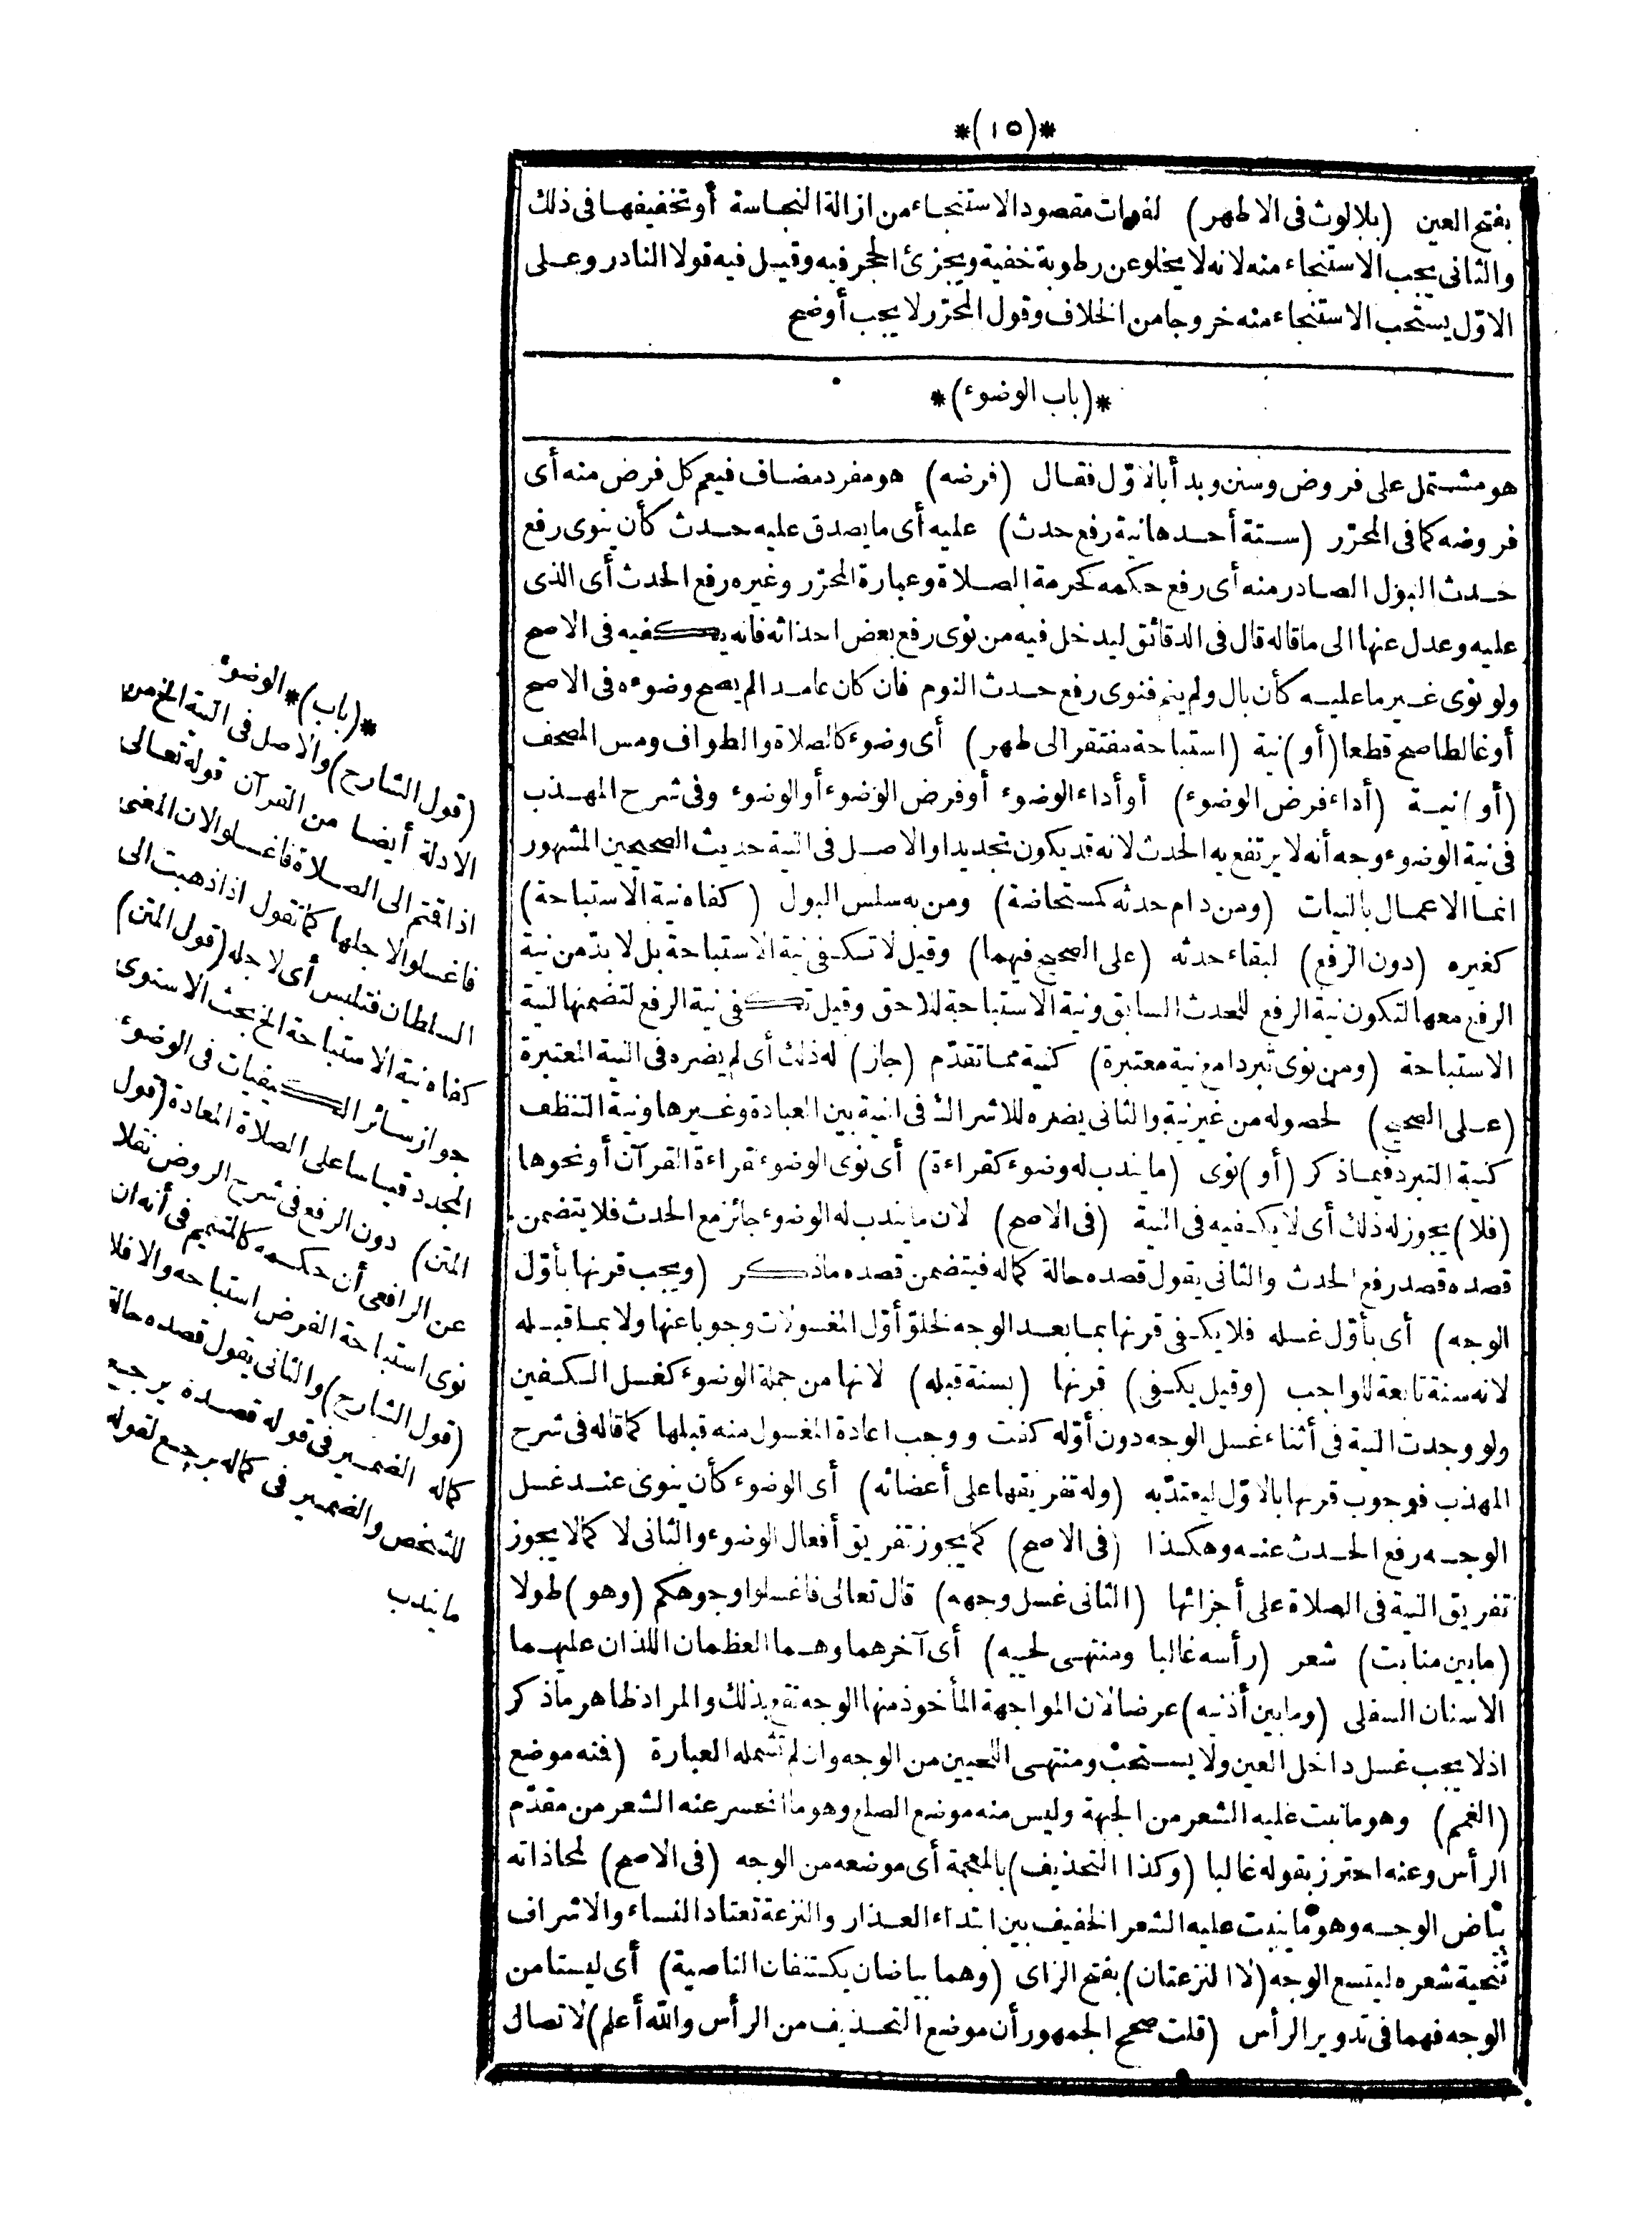 *(١٥)*
بفتح العين (بلا لوث فى الاظهر) لفوات مقصود الاستنجاء من ازالة النجاسة أو تخفيفها فى ذلك
والثانى يجب الاستنجاء منه لانه لا يخلو عن رطوبة خفية ويجزئ الحجر فيه وقيل فيه قولا النادر وعلى
الاوّل يستحب الاستنجاء منه خروجا من الخلاف وقول المحرّر لا يجب أوضح
*(باب الوضوء)*
هو مشتمل على فروض وسنن وبدأ بالاوّل فقال (فرضه) هو مفرد مضاف فيعم كل فرض منه أى
فروضه كما فى المحرّر (ستة أحدها نية رفع حدث) عليه أى ما يصدق عليه حدث كأن ينوى رفع
حدث البول الصادر منه أى رفع حكمه كحرمة الصلاة وعبارة المحرّر وغيره رفع الحدث أى الذى
عليه وعدل عنها الى ما قاله قال فى الدقائق ليدخل فيه من نوى رفع بعض احداثه فانه يكفيه فى الاصح
ولو نوى غير ما عليه كأن بال ولم ينم فنوى رفع حدث النوم فان كان عامدا لم يصح وضوءه فى الاصح
أو غالطا صح قطعا (أو) نية (استباحة مفتقر الى طهر) أى وضوء كالصلاة والطواف ومس المصحف
(أو) نية (أداء فرض الوضوء) أو أداء الوضوء أو فرض الوضوء أو الوضوء وفى شرح المهذب
فى نية الوضوء وجه أنه لا يرتفع به الحدث لانه قد يكون تجديدا والاصل فى النية حديث الصحيحين المشهور
انما الاعمال بالنيات (ومن دام حدثه كمستحاضة) ومن به سلس البول (كفاه نية الاستباحة)
كغيره (دون الرفع) لبقاء حدثه (على الصحيح فيهما) وقيل لا تكفى نية الاستباحة بل لا بدّ من نية
الرفع معها لتكون نية الرفع للحدث السابق ونية الاستباحة للاحق وقيل تكفى نية الرفع لتضمنها لنية
الاستباحة (ومن نوى تبردا مع نية معتبرة) كنية مما تقدّم (جاز) له ذلك أى لم يضره فى النية المعتبرة
(على الصحيح) لحصوله من غير نية والثانى يضره للاشراك فى النية بين العبادة وغيرها ونية التنظف
كنية التبرد فيما ذكر (أو) نوى (ما يندب له وضوء كقراءة) أى نوى الوضوء لقراءة القرآن أو نحوها
(فلا) يجوز له ذلك أى لا يكفيه فى النية (فى الاصح) لان ما يندب له الوضوء جائز مع الحدث فلا يتضمن
قصده قصد رفع الحدث والثانى يقول قصده حالة كماله فيتضمن قصده ما ذكر (ويجب قرنها بأوّل
الوجه) أى بأوّل غسله فلا يكفى قرنها بما بعد الوجه لخلوّ أوّل المغسولات وجوبا عنها ولا بما قبله
لانه سنة تابعة للواجب (وقيل يكفى) قرنها (بسنة قبله) لانها من جملة الوضوء كغسل الكفين
ولو وجدت النية فى أثناء غسل الوجه دون أوّله كفت ووجب اعادة المغسول منه قبلها كما قاله فى شرح
المهذب فوجوب قرنها بالاوّل ليعتدّ به (وله تفريقها على أعضائه) أى الوضوء كأن ينوى عند غسل
الوجه رفع الحدث عنه وهكذا (فى الاصح) كما يجوز تفريق أفعال الوضوء والثانى لا كما لا يجوز
تفريق النية فى الصلاة على أجزائها (الثانى غسل وجهه) قال تعالى فاغسلوا وجوهكم (وهو) طولا
(ما بين منابت) شعر (رأسه غالبا ومنتهى لحييه) أى آخرهما وهما العظمان اللذان عليهما
الاسنان السفلى (وما بين أذنيه) عرضا لان المواجهة المأخوذ منها الوجه تقع بذلك والمراد ظاهر ما ذكر
اذ لا يجب غسل داخل العين ولا يستحب ومنتهى اللحيين من الوجه وان لم تشمله العبارة (فمنه موضع
(الغمم) وهو ما نبت عليه الشعر من الجبهة وليس منه موضع الصلع وهو ما انحسر عنه الشعر من مقدّم
الرأس وعنه احترز بقوله غالبا (وكذا التحذيف) بالمعجمة أى موضعه من الوجه (فى الاصح) لمحاذاته
بياض الوجه وهو ما ينبت عليه الشعر الخفيف بين ابتداء العذار والنزعة تعتاد النساء والاشراف
تنحية شعره ليتسع الوجه (لا النزعتان) بفتح الزاى (وهما بياضان يكتنفان الناصية) أى ليستا من
الوجه فهما فى تدوير الرأس (قلت صحح الجمهور أن موضع التحذيف من الرأس والله أعلم) لاتصال
*(باب)* الوضوء
(قول الشارح) والاصل فى النية الخ من
الادلة أيضا من القرآن قوله تعالى
اذا قمتم الى الصلاة فاغسلوا لان المعنى
فاغسلوا لاجلها كما تقول اذا ذهبت الى
السلطان فتلبس أى لاجله (قول المتن)
كفاه نية الاستباحة الخ بحث الاسنوى
جواز سائر الكيفيات فى الوضوء
المجدد قياسا على الصلاة المعادة (قول
المتن) دون الرفع فى شرح الروض نقلا
عن الرافعى أن حكمه كالمتيمم فى أنه ان
نوى استباحة الفرض استباحه والا فلا
(قول الشارح) والثانى يقول قصده حالة
كماله الضمير فى قوله قصده يرجع
للشخص والضمير فى كماله يرجع لقوله
ما يندب